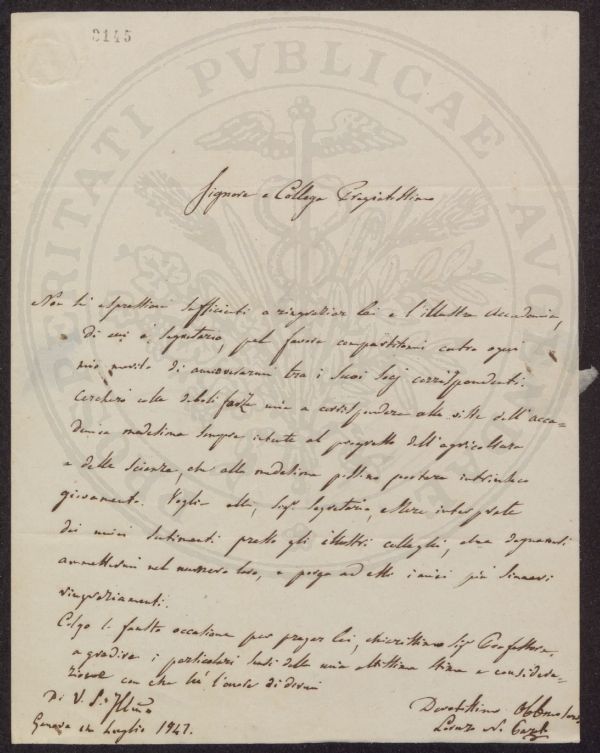 3145
Signore e Collega Pregiatissimo
Non hò espressioni sufficienti a ringraziar Lei e l'illustre Accademia,
di cui è Segretario, pel favore compartitomi contro ogni
mio merito di annoverarmi tra i suoi Socj corrispondenti.
Cercherò colle deboli forze mie a corrispondere alle viste dell'acca-
demia medesima sempre intenta al progresso dell'agricoltura
e delle scienze, che alla medesima possono portare intrinseco
giovamento. Voglia ella, Sigr Segretario, essere interprete
dei miei sentimenti presso gli illustri colleghi, che degnaronsi
ammettermi nel numero loro, e porga ad essi i miei più sinceri
ringraziamenti.
Colgo la fausta occasione per pregar Lei, chiarissimo Sigr Professore,
a gradire i particolari sensi della mia altissima stima e considera-
zione con che hò l'onore di dirmi
Di V. S. Illma
Genova Luglio 1847.
Devotissimo Obbmo
Lorenzo N.
PROSPERITATI PVBLICAE AVGENDAE